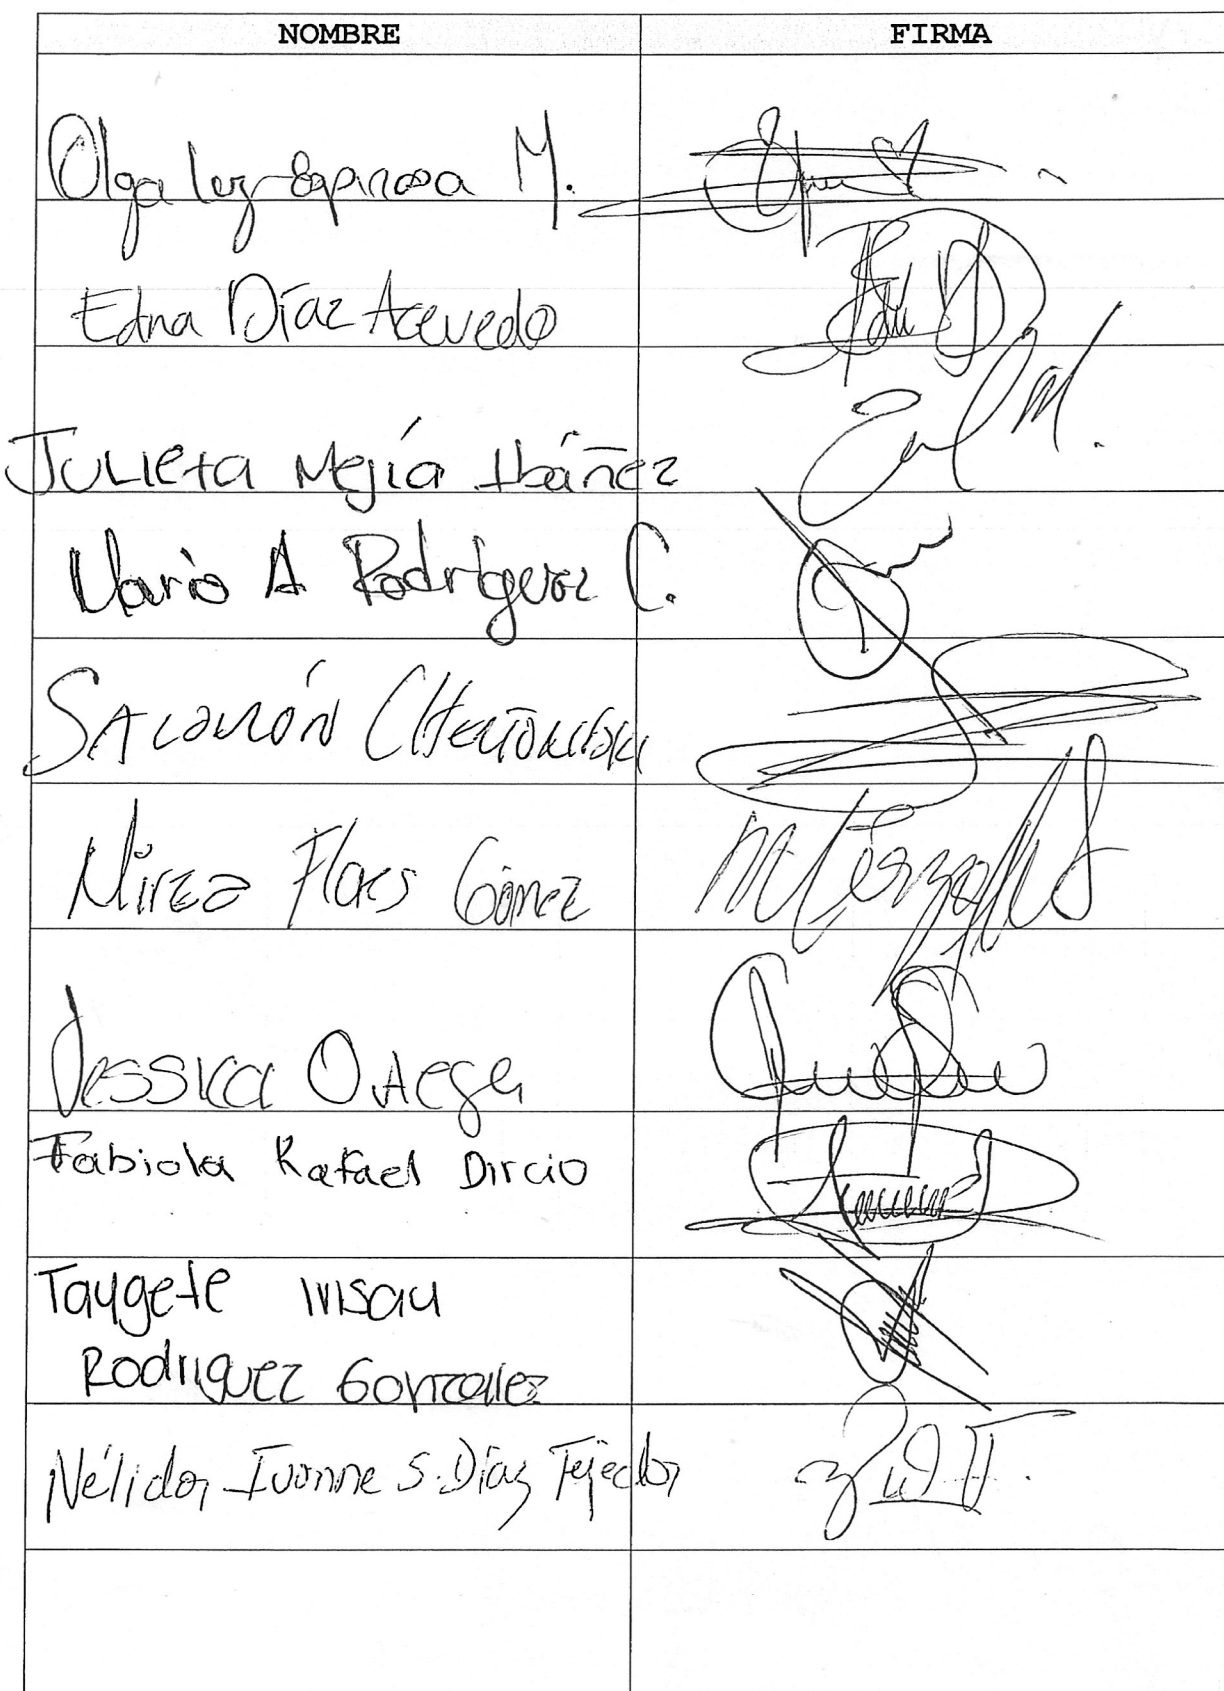 NOMBRE FIRMA
Olga Luz Espinosa M.
Edna Díaz Acevedo
Julieta Mejía Ibáñez
Mario A Rodríguez C.
Salomón Chertorivski
Mirza Flores Gómez
Jessica Ortega
Fabiola Rafael Dircio
Taygete Irisay
Rodriguez Gonzalez
Nélida Ivonne S. Díaz Tejeda